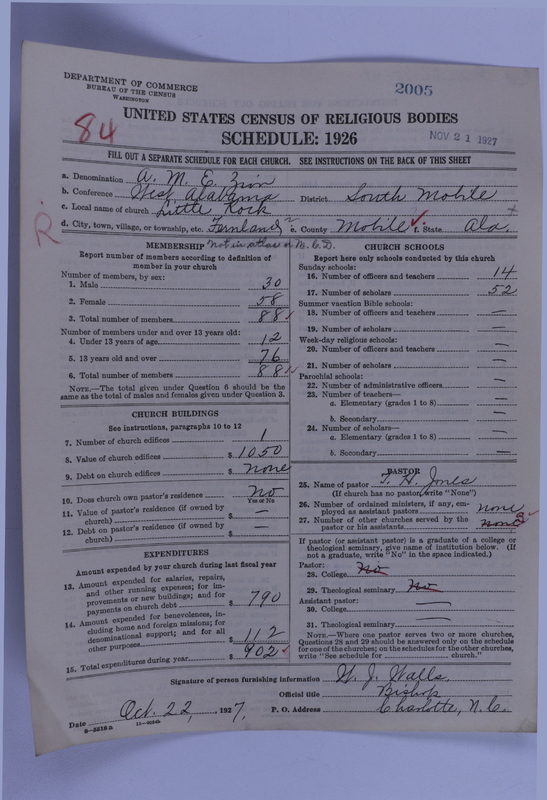 DEPARTMENT OF COMMERCE
BUREAU OF THE CENSUS
WASHINGTON
2005
84
UNITED STATES CENSUS OF RELIGIOUS BODIES
SCHEDULE: 1926
NOV 21 1927
FILL OUT A SEPARATE SCHEDULE FOR EACH CHURCH. SEE INSTRUCTIONS ON THE BACK OF THIS SHEET
a. Denomination A. M. E. Zion
b. Conference West Alabama District South Mobile
c. Local name of church Little Rock
R
d. City, town, village, or township, etc. Fernland e. County Mobile f. State Ala.
Not in atlas or M.C.D.
MEMBERSHIP
Report number of members according to definition of
member in your church
Number of members, by sex:
1. Male 30
2. Female 58
3. Total number of members 88
Number of members under and over 13 years old:
4. Under 13 years of age 12
5. 13 years old and over 76
6. Total number of members 88
NOTE.—The total given under Question 6 should be the
same as the total of males and females given under Question 3.
CHURCH BUILDINGS
See instructions, paragraphs 10 to 12
7. Number of church edifices 1
8. Value of church edifices $ 1050
9. Debt on church edifices $ none
10. Does church own pastor's residence No
Yes or No
11. Value of pastor's residence (if owned by
church) $ —
12. Debt on pastor's residence (if owned by
church) $ —
EXPENDITURES
Amount expended by your church during last fiscal year
13. Amount expended for salaries, repairs,
and other running expenses; for im-
provements or new buildings; and for
payments on church debt $ 790
14. Amount expended for benevolences, in-
cluding home and foreign missions; for
denominational support; and for all
other purposes $ 112
15. Total expenditures during year $ 902
CHURCH SCHOOLS
Report here only schools conducted by this church
Sunday schools:
16. Number of officers and teachers 14
17. Number of scholars 52
Summer vacation Bible schools:
18. Number of officers and teachers —
19. Number of scholars —
Week-day religious schools:
20. Number of officers and teachers —
21. Number of scholars —
Parochial schools:
22. Number of administrative officers —
23. Number of teachers—
a. Elementary (grades 1 to 8) —
b. Secondary —
24. Number of scholars—
a. Elementary (grades 1 to 8) —
b. Secondary —
PASTOR
25. Name of pastor T. H. Jones
(If church has no pastor, write "None")
26. Number of ordained ministers, if any, em-
ployed as assistant pastors none
27. Number of other churches served by the
pastor or his assistants none 3
If pastor (or assistant pastor) is a graduate of a college or
theological seminary, give name of institution below. (If
not a graduate, write "No" in the space indicated.)
Pastor:
28. College No
29. Theological seminary No
Assistant pastor:
30. College —
31. Theological seminary —
NOTE.—Where one pastor serves two or more churches,
Questions 28 and 29 should be answered only on the schedule
for one of the churches; on the schedules for the other churches,
write "See schedule for church."
Signature of person furnishing information W. J. Walls
Official title Bishop
Date Oct. 22, 1927. P. O. Address Charlotte, N.C.